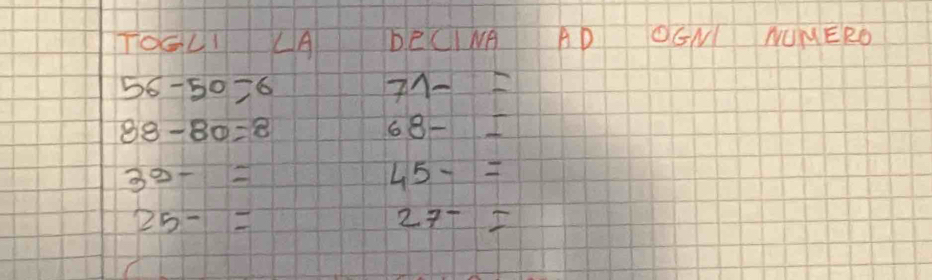 TOGLI LA DECINA AD OGNI NUMERO
56-50=6 71- =
88-80=8 68- =
39- = 45- =
25- = 27- =